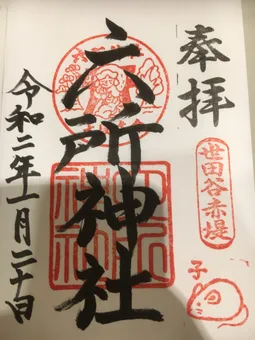 奉拝
世田谷赤堤
子
六所神社
令和二年一月二十日